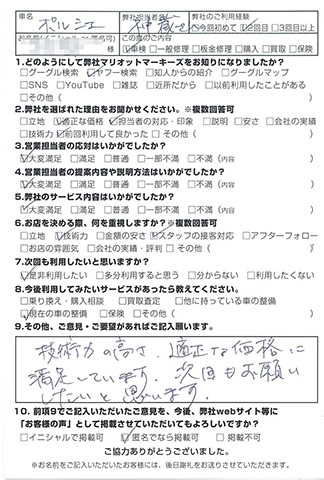 車名 ポルシェ 弊社担当者 仲蔵さん 弊社のご利用経験
□今回初めて ☑2回目 □3回目以上
お名前(イニシャル or 匿名可) 今回のご内容
☑車検 □一般修理 □板金修理 □購入 □買取 □保険
1.どのようにして弊社マリオットマーキーズをお知りになりましたか?
□グーグル検索 ☑ヤフー検索 □知人からの紹介 □グーグルマップ
□SNS □YouTube □雑誌 □近所だから □以前利用したことがある
□その他( )
2.弊社を選ばれた理由をお聞かせください。※複数回答可
□立地 ☑適正な価格 ☑担当者の対応・印象 □説明 □安さ □会社の実績
□技術力 ☑前回利用して良かった □その他( )
3.営業担当者の応対はいかがでしたか?
☑大変満足 □満足 □普通 □一部不満 □不満(内容 )
4.営業担当者の提案内容や説明方法はいかがでしたか?
☑大変満足 □満足 □普通 □一部不満 □不満(内容 )
5.弊社のサービス内容はいかがでしたか?
☑大変満足 □満足 □普通 □一部不満 □不満(内容 )
6.お店を決める際、何を重視しますか?※複数回答可
□立地 ☑技術力 □金額の安さ ☑スタッフの接客対応 □アフターフォロー
□お店の雰囲気 □会社の実績・評判 □その他( )
7.次回も利用したいと思いますか?
☑是非利用したい □多分利用すると思う □分からない □利用したくない
8.今後利用してみたいサービスがあったら教えてください。
□乗り換え・購入相談 □買取査定 □他に持っている車の整備
☑現在の車の整備 □保険 □その他( )
9.その他、ご意見・ご要望があればご記入願います。
技術力の高さ、適正な価格に
満足しています。次回もお願い
したいと思います。
10.前項9でご記入いただいたご意見を、今後、弊社webサイト等に
「お客様の声」として掲載させていただいてもよろしいですか?
□イニシャルで掲載可 ☑匿名なら掲載可 □掲載不可
ご協力ありがとうございました。
※お名前をご記入いただいたお客様には、後日謝礼をお送りさせていただきます。